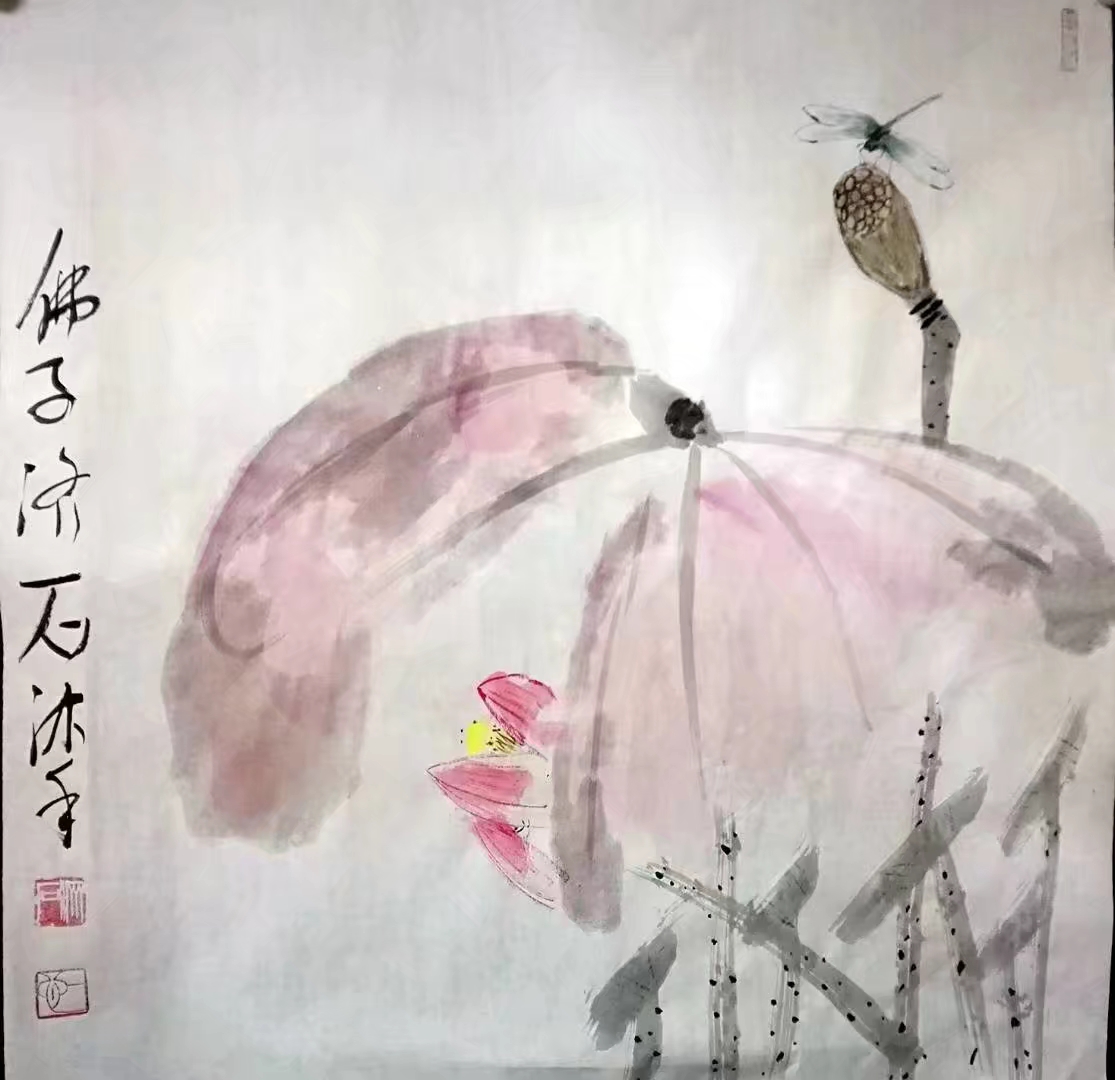 佛子济石沐手